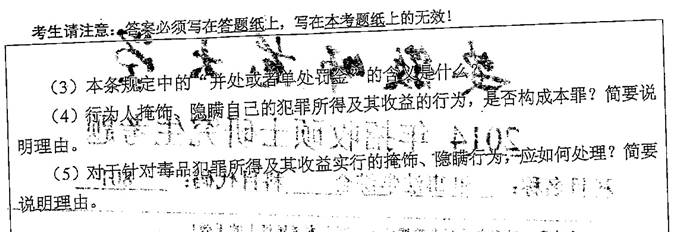 考生请注意：答案必须写在答题纸上，写在本考题纸上的无效！
（3）本条规定中的“并处或者单处罚金”的含义是什么？
（4）行为人掩饰、隐瞒自己的犯罪所得及其收益的行为，是否构成本罪？简要说
明理由。
（5）对于针对毒品犯罪所得及其收益实行的掩饰、隐瞒行为，应如何处理？简要
说明理由。